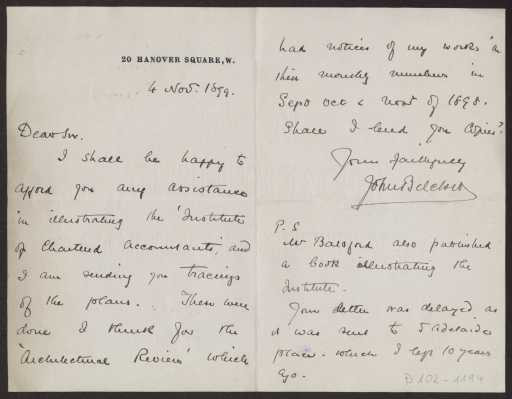 20 HANOVER SQUARE, W.
4 Nov. 1899.
Dear Sir.
I shall be happy to
afford you any assistance
in illustrating the 'Institute
of Chartered Accountants', and
I am sending you tracings
of the plans. These were
done I think for the
'Architectural Review' which
had notices of my works in
their monthly numbers in
Sept Oct & Novr of 1898.
Shall I lend you copies?
Yours faithfully
John Belcher
P.S
Mr Batsford also published
a book illustrating the
Institute.
Your letter was delayed as
it was sent to 5 Adelaide
place. which I left 10 years
ago.
B 102-1194